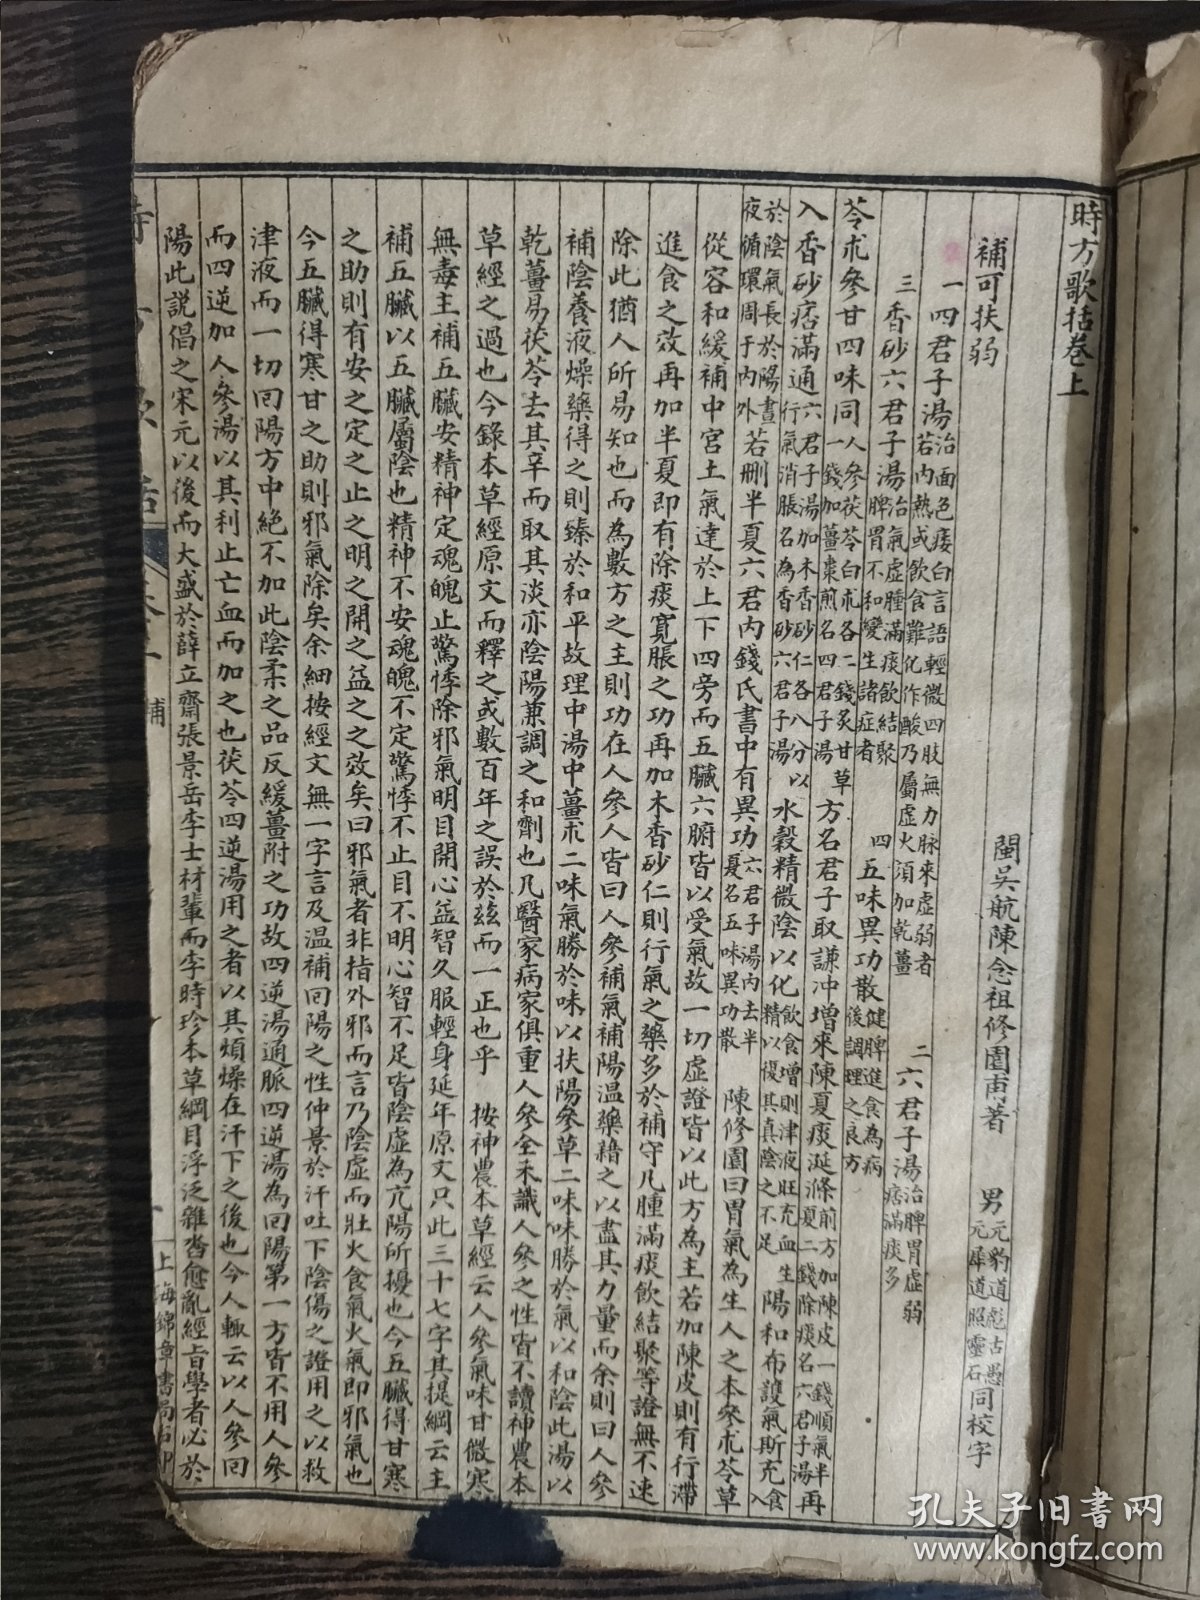 時方歌括卷上
閩吳航陳念祖修園甫著　男元豹道彪古愚元犀道照靈石同校字
補可扶弱
一四君子湯治面色痿白言語輕微四肢無力脉來虛弱者若内熱或飲食難化作酸乃屬虛火須加乾薑　二六君子湯治脾胃虛弱痞滿痰多
三香砂六君子湯治氣虛腫滿痰飲結聚脾胃不和變生諸症者　四五味異功散健脾進食為病後調理之良方
苓朮參甘四味同人參茯苓白朮各二錢炙甘草一錢加薑棗煎名四君子湯方名君子取謙沖增來陳夏痰涎滌前方加陳皮一錢順氣半夏二錢除痰名六君子湯再
入香砂痞滿通六君子湯加木香砂仁各八分以行氣消脹名為香砂六君子湯水穀精微陰以化飲食增則津液旺充血生精以復其真陰之不足陽和布護氣斯充食入
於陰氣長於陽晝夜循環周于内外若刪半夏六君内錢氏書中有異功六君子湯内去半夏名五味異功散　陳修園曰胃氣為生人之本參朮苓草
從容和緩補中宮土氣達於上下四旁而五臟六腑皆以受氣故一切虛證皆以此方為主若加陳皮則有行滯
進食之效再加半夏即有除痰寛脹之功再加木香砂仁則行氣之藥多於補守凡腫滿痰飲結聚等證無不速
除此猶人所易知也而為數方之主則功在人參人皆曰人參補氣補陽温藥藉之以盡其力量而余則曰人參
補陰養液燥藥得之則臻於和平故理中湯中薑朮二味氣勝於味以扶陽參草二味味勝於氣以和陰此湯以
乾薑易茯苓去其辛而取其淡亦陰陽兼調之和劑也凡醫家病家俱重人參全未識人參之性皆不讀神農本
草經之過也今錄本草經原文而釋之或數百年之誤於茲而一正也乎　按神農本草經云人參氣味甘微寒
無毒主補五臟安精神定魂魄止驚悸除邪氣明目開心益智久服輕身延年原文只此三十七字其提綱云主
補五臟以五臟屬陰也精神不安魂魄不定驚悸不止目不明心智不足皆陰虛為亢陽所擾也今五臟得甘寒
之助則有安之定之止之明之開之益之之效矣曰邪氣者非指外邪而言乃陰虛而壯火食氣火氣即邪氣也
今五臟得寒甘之助則邪氣除矣余細按經文無一字言及温補回陽之性仲景於汗吐下陰傷之證用之以救
津液而一切回陽方中絶不加此陰柔之品反緩薑附之功故四逆湯通脈四逆湯為回陽第一方皆不用人參
而四逆加人參湯以其利止亡血而加之也茯苓四逆湯用之者以其煩燥在汗下之後也今人輒云以人參回
陽此説倡之宋元以後而大盛於薛立齋張景岳李士材輩而李時珍本草綱目浮泛雜沓愈亂經旨學者必於
補
上海錦章書局石印
孔夫子旧书网
www.kongfz.com